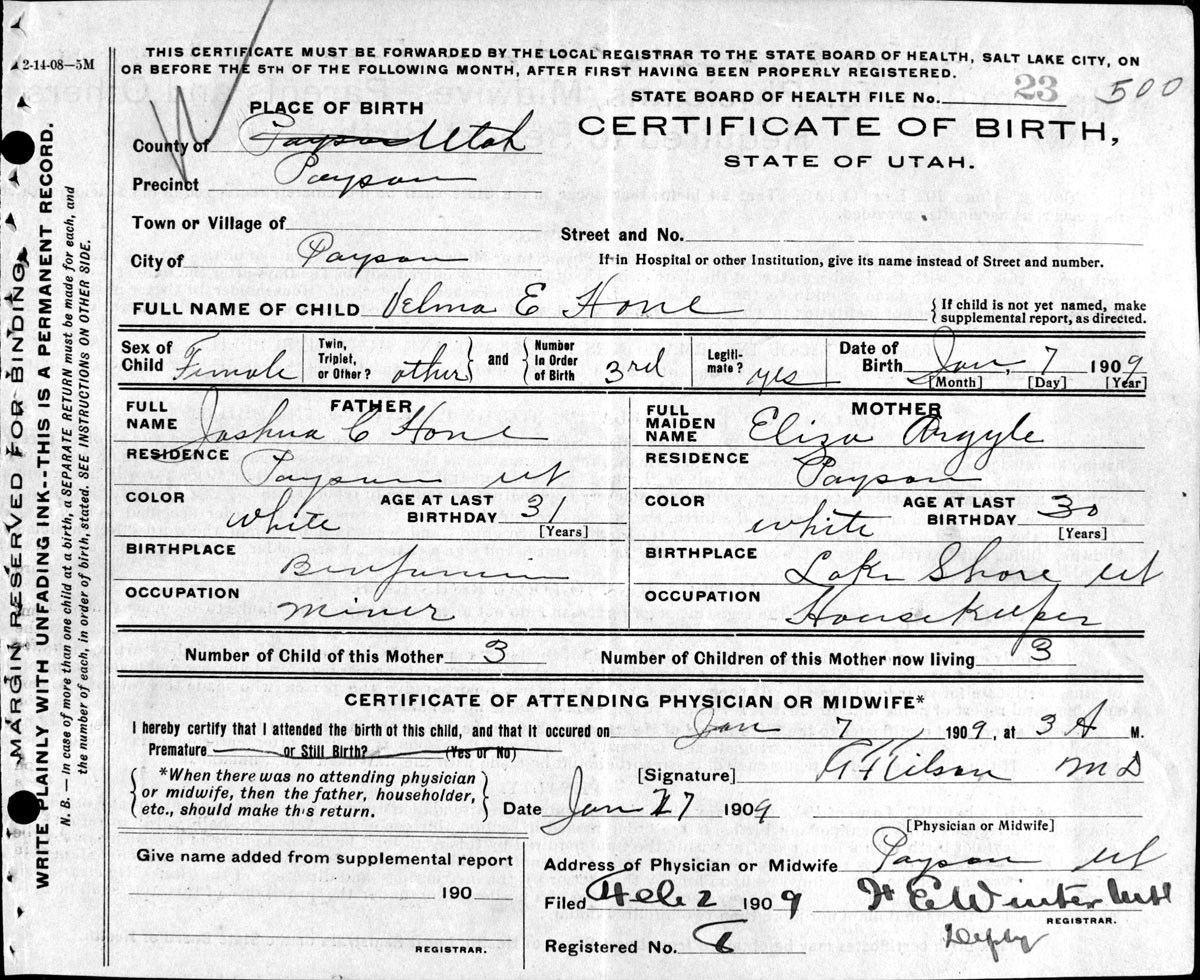 2-14-08—5M
THIS CERTIFICATE MUST BE FORWARDED BY THE LOCAL REGISTRAR TO THE STATE BOARD OF HEALTH, SALT LAKE CITY, ON
OR BEFORE THE 5TH OF THE FOLLOWING MONTH, AFTER FIRST HAVING BEEN PROPERLY REGISTERED.
STATE BOARD OF HEALTH FILE No. 23 500
PLACE OF BIRTH
CERTIFICATE OF BIRTH,
STATE OF UTAH.
County of Payson Utah
Precinct Payson
Town or Village of
Street and No.
City of Payson
If in Hospital or other Institution, give its name instead of Street and number.
FULL NAME OF CHILD Velma E Hone
{ If child is not yet named, make
supplemental report, as directed.
Sex of Child Female
Twin, Triplet, or Other? other } and { Number In Order of Birth 3rd
Legiti-mate? yes
Date of Birth Jan, 7 1909
[Month] [Day] [Year]
FATHER
FULL NAME Joshua C Hone
RESIDENCE Payson Ut
COLOR White
AGE AT LAST BIRTHDAY 31
[Years]
BIRTHPLACE Benjamin
OCCUPATION Miner
MOTHER
FULL MAIDEN NAME Eliza Argyle
RESIDENCE Payson
COLOR White
AGE AT LAST BIRTHDAY 30
[Years]
BIRTHPLACE Lake Shore Ut
OCCUPATION Housekeeper
Number of Child of this Mother 3
Number of Children of this Mother now living 3
CERTIFICATE OF ATTENDING PHYSICIAN OR MIDWIFE*
I hereby certify that I attended the birth of this child, and that it occured on Jan 7 1909, at 3 A M.
Premature or Still Birth? (Yes or No)
{ *When there was no attending physician
or midwife, then the father, householder,
etc., should make this return. }
[Signature] MD
Date Jan 27 1909
[Physician or Midwife]
Give name added from supplemental report
190
REGISTRAR.
Address of Physician or Midwife Payson Ut
Filed Feb 2 1909 Winter
REGISTRAR.
Depty
Registered No.
MARGIN RESERVED FOR BINDING
WRITE PLAINLY WITH UNFADING INK--THIS IS A PERMANENT RECORD.
N. B. — In case of more than one child at birth, a SEPARATE RETURN must be made for each, and
the number of each, in order of birth, stated. SEE INSTRUCTIONS ON OTHER SIDE.